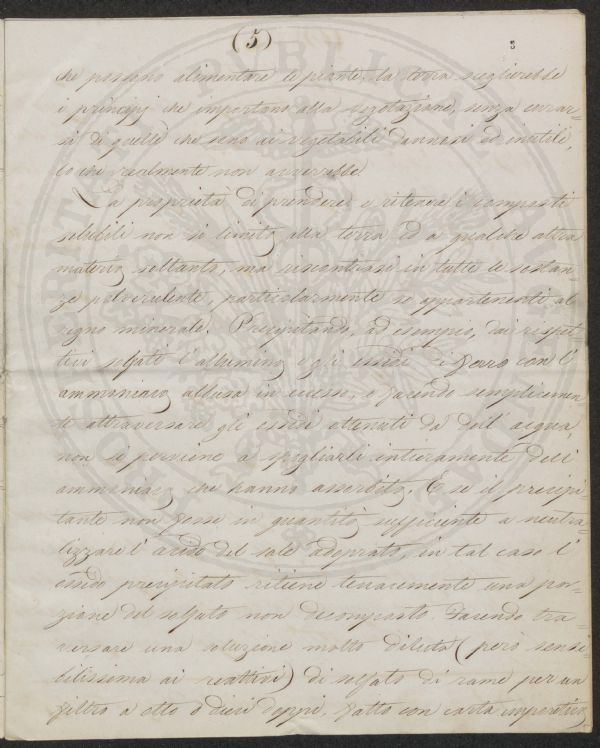 (5)
3
che possano alimentare le piante, la terra sceglierebbe
i principj che importano alla vegetazione, senza curar=
si di quelli che sono ai vegetabili dannosi ed inutili,
lo che realmente non avverrebbe.
La proprietà di prendere e ritenere i composti
solubili non si limita alla terra ed a qualche altra
materia soltanto, ma riscontrasi in tutte le sostan=
ze polverulente, particolarmente se appartenenti al
regno minerale. Precipitando, ad esempio, dai rispet=
tivi solfati l'allumina e gli ossidi di ferro con l'
ammoniaca allusa in eccesso, e facendo semplicemen=
te attraversare gli ossidi ottenuti da dell'acqua,
non si perviene a spogliarli intieramente dell'
ammoniaca che hanno assorbito. E se il precipi
tante non fosse in quantità sufficiente a neutra=
lizzare l'acido del sale adoprato, in tal caso l'
ossido precipitato ritiene tenacemente una por=
zione del solfato non decomposto. Facendo tra=
versare una soluzione molto diluta (però sensi=
bilissima ai reattivi) di solfato di rame per un
filtro a otto o dieci doppi, fatto con carta
LOSPERITATI PUBLICAE AUGENDAE